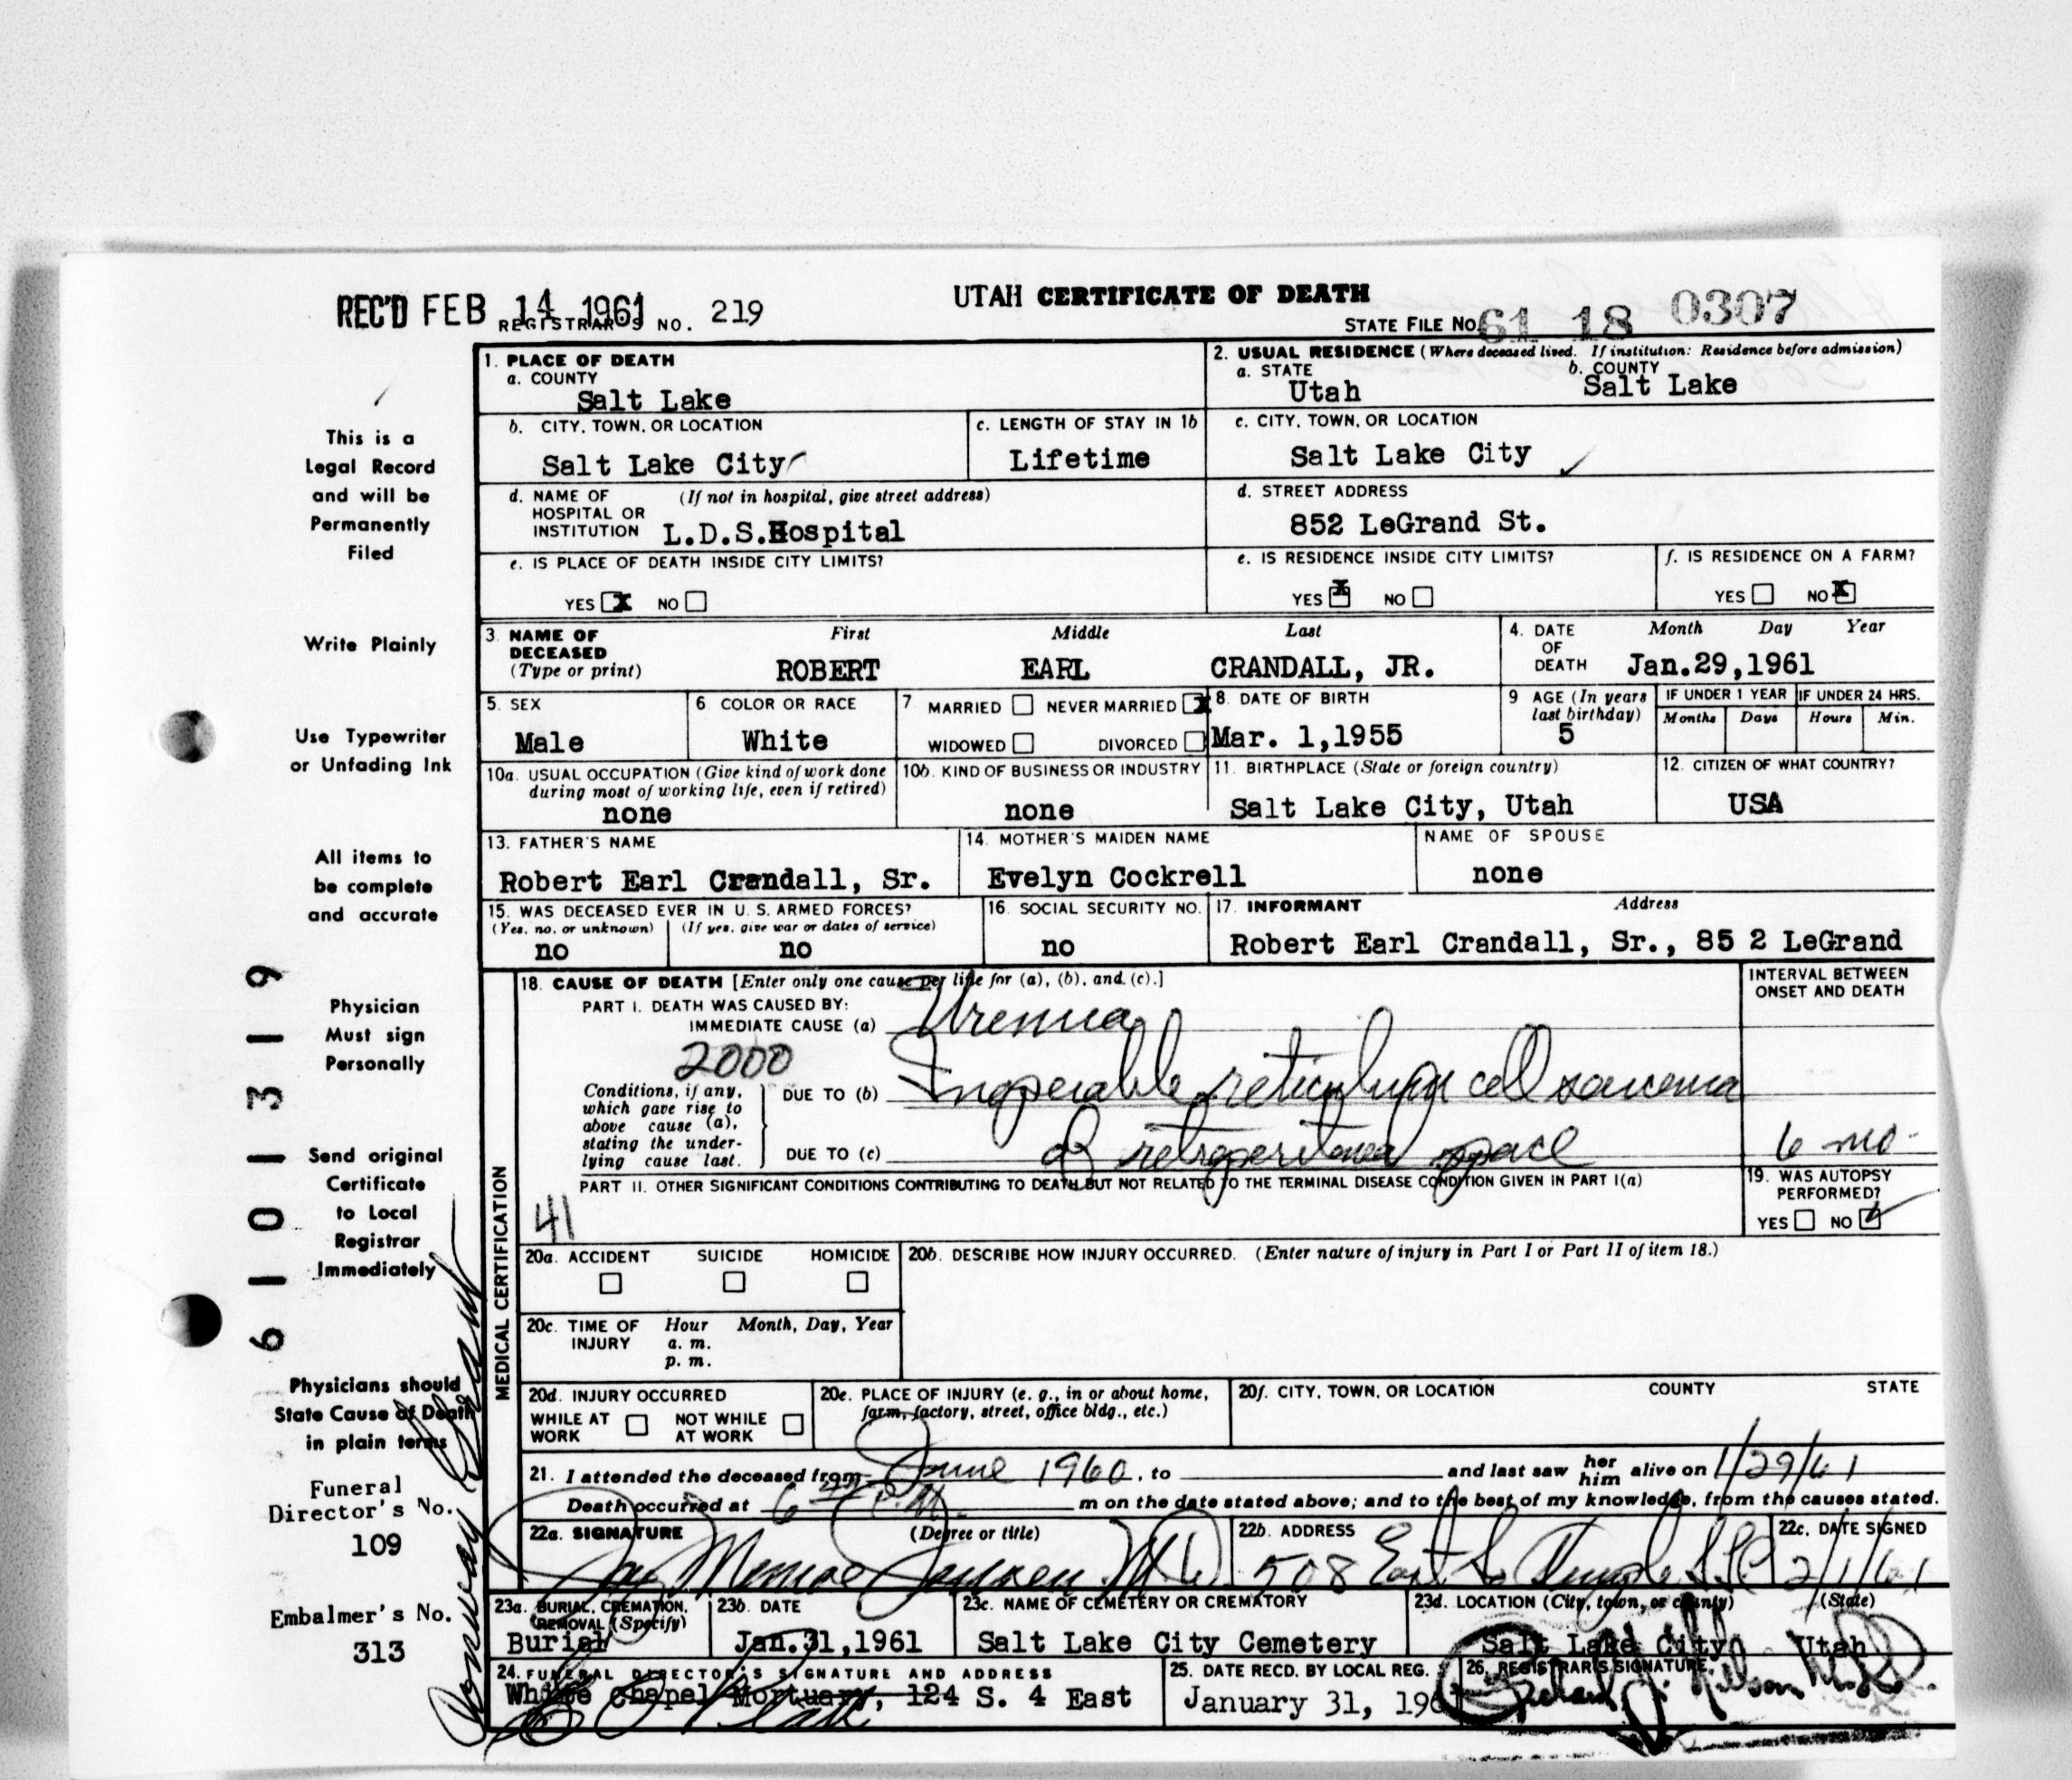 REC'D FEB 14 1961
REGISTRAR'S NO. 219
UTAH CERTIFICATE OF DEATH
STATE FILE NO. 61 18 0307
1. PLACE OF DEATH
a. COUNTY
Salt Lake
2. USUAL RESIDENCE (Where deceased lived. If institution: Residence before admission)
a. STATE
Utah
b. COUNTY
Salt Lake
b. CITY, TOWN, OR LOCATION
Salt Lake City
c. LENGTH OF STAY IN 1b
Lifetime
c. CITY, TOWN, OR LOCATION
Salt Lake City
d. NAME OF HOSPITAL OR INSTITUTION
(If not in hospital, give street address)
L.D.S.Hospital
d. STREET ADDRESS
852 LeGrand St.
e. IS PLACE OF DEATH INSIDE CITY LIMITS?
YES X NO
e. IS RESIDENCE INSIDE CITY LIMITS?
YES X NO
f. IS RESIDENCE ON A FARM?
YES NO X
3. NAME OF DECEASED
(Type or print)
First Middle Last
ROBERT EARL CRANDALL, JR.
4. DATE OF DEATH
Month Day Year
Jan.29,1961
5. SEX
Male
6 COLOR OR RACE
White
7 MARRIED NEVER MARRIED X
WIDOWED DIVORCED
8. DATE OF BIRTH
Mar. 1,1955
9 AGE (In years last birthday)
5
IF UNDER 1 YEAR IF UNDER 24 HRS.
Months Days Hours Min.
10a. USUAL OCCUPATION (Give kind of work done during most of working life, even if retired)
none
10b. KIND OF BUSINESS OR INDUSTRY
none
11. BIRTHPLACE (State or foreign country)
Salt Lake City, Utah
12. CITIZEN OF WHAT COUNTRY?
USA
13. FATHER'S NAME
Robert Earl Crandall, Sr.
14. MOTHER'S MAIDEN NAME
Evelyn Cockrell
NAME OF SPOUSE
none
15. WAS DECEASED EVER IN U. S. ARMED FORCES?
(Yes, no, or unknown) (If yes, give war or dates of service)
no no
16. SOCIAL SECURITY NO.
no
17. INFORMANT Address
Robert Earl Crandall, Sr., 85 2 LeGrand
MEDICAL CERTIFICATION
18. CAUSE OF DEATH [Enter only one cause per line for (a), (b), and (c).]
PART I. DEATH WAS CAUSED BY:
IMMEDIATE CAUSE (a) Uremia
2000
Conditions, if any, which gave rise to above cause (a), stating the underlying cause last.
DUE TO (b) Inoperable reticulum cell sarcoma
DUE TO (c) of retroperitoneal space
INTERVAL BETWEEN ONSET AND DEATH
6 mo.
PART II. OTHER SIGNIFICANT CONDITIONS CONTRIBUTING TO DEATH BUT NOT RELATED TO THE TERMINAL DISEASE CONDITION GIVEN IN PART I(a)
41
19. WAS AUTOPSY PERFORMED?
YES NO ✓
20a. ACCIDENT SUICIDE HOMICIDE
20b. DESCRIBE HOW INJURY OCCURRED. (Enter nature of injury in Part I or Part II of item 18.)
20c. TIME OF INJURY
Hour Month, Day, Year
a. m.
p. m.
20d. INJURY OCCURRED
WHILE AT WORK NOT WHILE AT WORK
20e. PLACE OF INJURY (e. g., in or about home, farm, factory, street, office bldg., etc.)
20f. CITY, TOWN, OR LOCATION COUNTY STATE
21. I attended the deceased from June 1960, to and last saw her him alive on 1/29/61
Death occurred at 6 P.M. m on the date stated above; and to the best of my knowledge, from the causes stated.
22a. SIGNATURE (Degree or title)
Jay Monroe Jensen M.D.
22b. ADDRESS
508 East So Temple SLC
22c. DATE SIGNED
2/1/61
23a. BURIAL, CREMATION, REMOVAL (Specify)
Burial
23b. DATE
Jan.31,1961
23c. NAME OF CEMETERY OR CREMATORY
Salt Lake City Cemetery
23d. LOCATION (City, town, or county) (State)
Salt Lake City Utah
24. FUNERAL DIRECTOR'S SIGNATURE AND ADDRESS
White Chapel Mortuary, 124 S. 4 East
25. DATE RECD. BY LOCAL REG.
January 31, 196
26. REGISTRAR'S SIGNATURE
Nelson
This is a
Legal Record
and will be
Permanently
Filed
Write Plainly
Use Typewriter
or Unfading Ink
All items to
be complete
and accurate
Physician
Must sign
Personally
Send original
Certificate
to Local
Registrar
Immediately
Physicians should
State Cause of Death
in plain terms
Funeral
Director's No.
109
Embalmer's No.
313